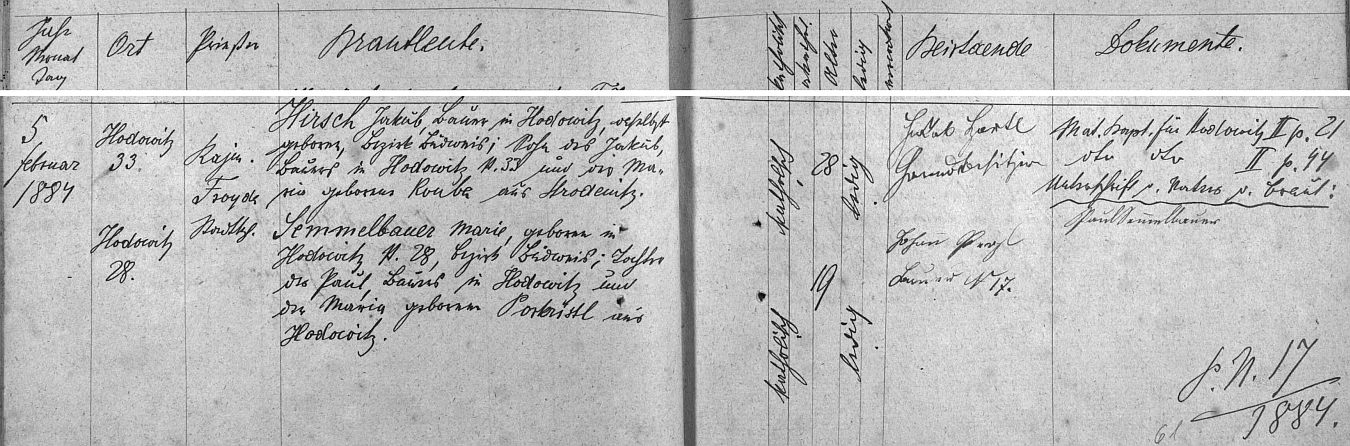 Jahr
Monat
Tag
Ort
Priester
Brautleute.
Alter
ledig
Beistaende
Dokumente.
5
februar
1884
Hodowitz
33.
Kajm.
Froyda
Stadtkpl.
Hirsch Jakub Bauer in Hodowitz, daselbst
geboren, Bezirk Budweis; Sohn des Jakub,
Bauers in Hodowitz N. 33 und der Ma-
ria geborene Kouba aus Strodenitz.
katholisch
28
ledig
Jakob Hartl
Grundbesitzer
Mat. Hapt. für Hodowitz II p. 21
dto dto II p. 94
Unterschrift d. Vaters d. Braut:
Paul Semmelbauer
Hodowitz
28.
Semmelbauer Marie, geboren in
Hodowitz N. 28, Bezirk Budweis; Tochter
des Paul, Bauers in Hodowitz und
der Maria geborenen aus
Hodowitz.
katholisch
19
ledig
Johann
Bauer N 17.
P. N. 17
1884.
61